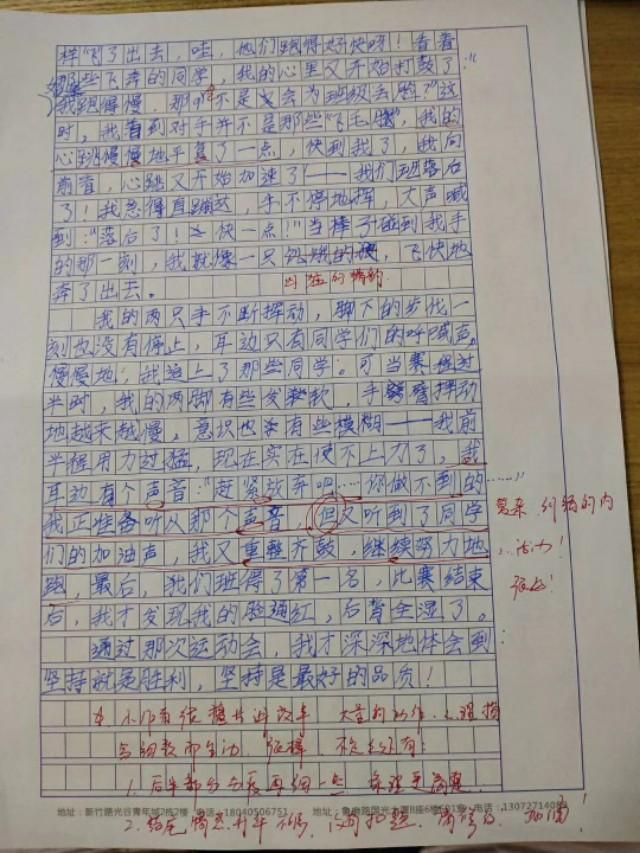 样"飞了出去，哇，他们跑得好快呀！看着
那些飞奔的同学，我的心里又开始打鼓了："
我跑得慢，那 不是又会为班级丢脸？"这
时，我看到对手并不是那些"飞毛腿"，我的
心跳慢慢地平复了一点，快到我了，我向
前看，心跳又开始加速了——我们班落后
了！我急得直蹦达，手不停地挥，大声喊
到："落后了！ 快一点！"当棒子碰到我手
的那一刻，我就像一只 饿的 ，飞快地
奔了出去。
我的两只手不断挥动，脚下的步伐一
刻也没有停止，耳边只有同学们的呼喊声。
慢慢地，我追上了那些同学。可当赛程过
半时，我的两脚有些发软，手臂挥动
地越来越慢，意识也 有些模糊——我前
半程用力过猛，现在实在使不上力了，我
耳边有个声音："赶紧放弃吧……你做不到的……"
我正准备听从那个声音，但又听到了同学
们的加油声，我又重整齐鼓，继续努力地
跑，最后，我们班得了第一名，比赛结束
后，我才发现我的脸通红，后背全湿了。
通过那次运动会，我才深深地体会到：
坚持就是胜利，坚持是最好的品质！
的内
活动！
大量的动作、心理描
写细致而生动
1.后半部分
地址：新竹路光谷青年城2栋2楼 电话：18040506751
电话：13072714089
2.结尾
扣题
加油！